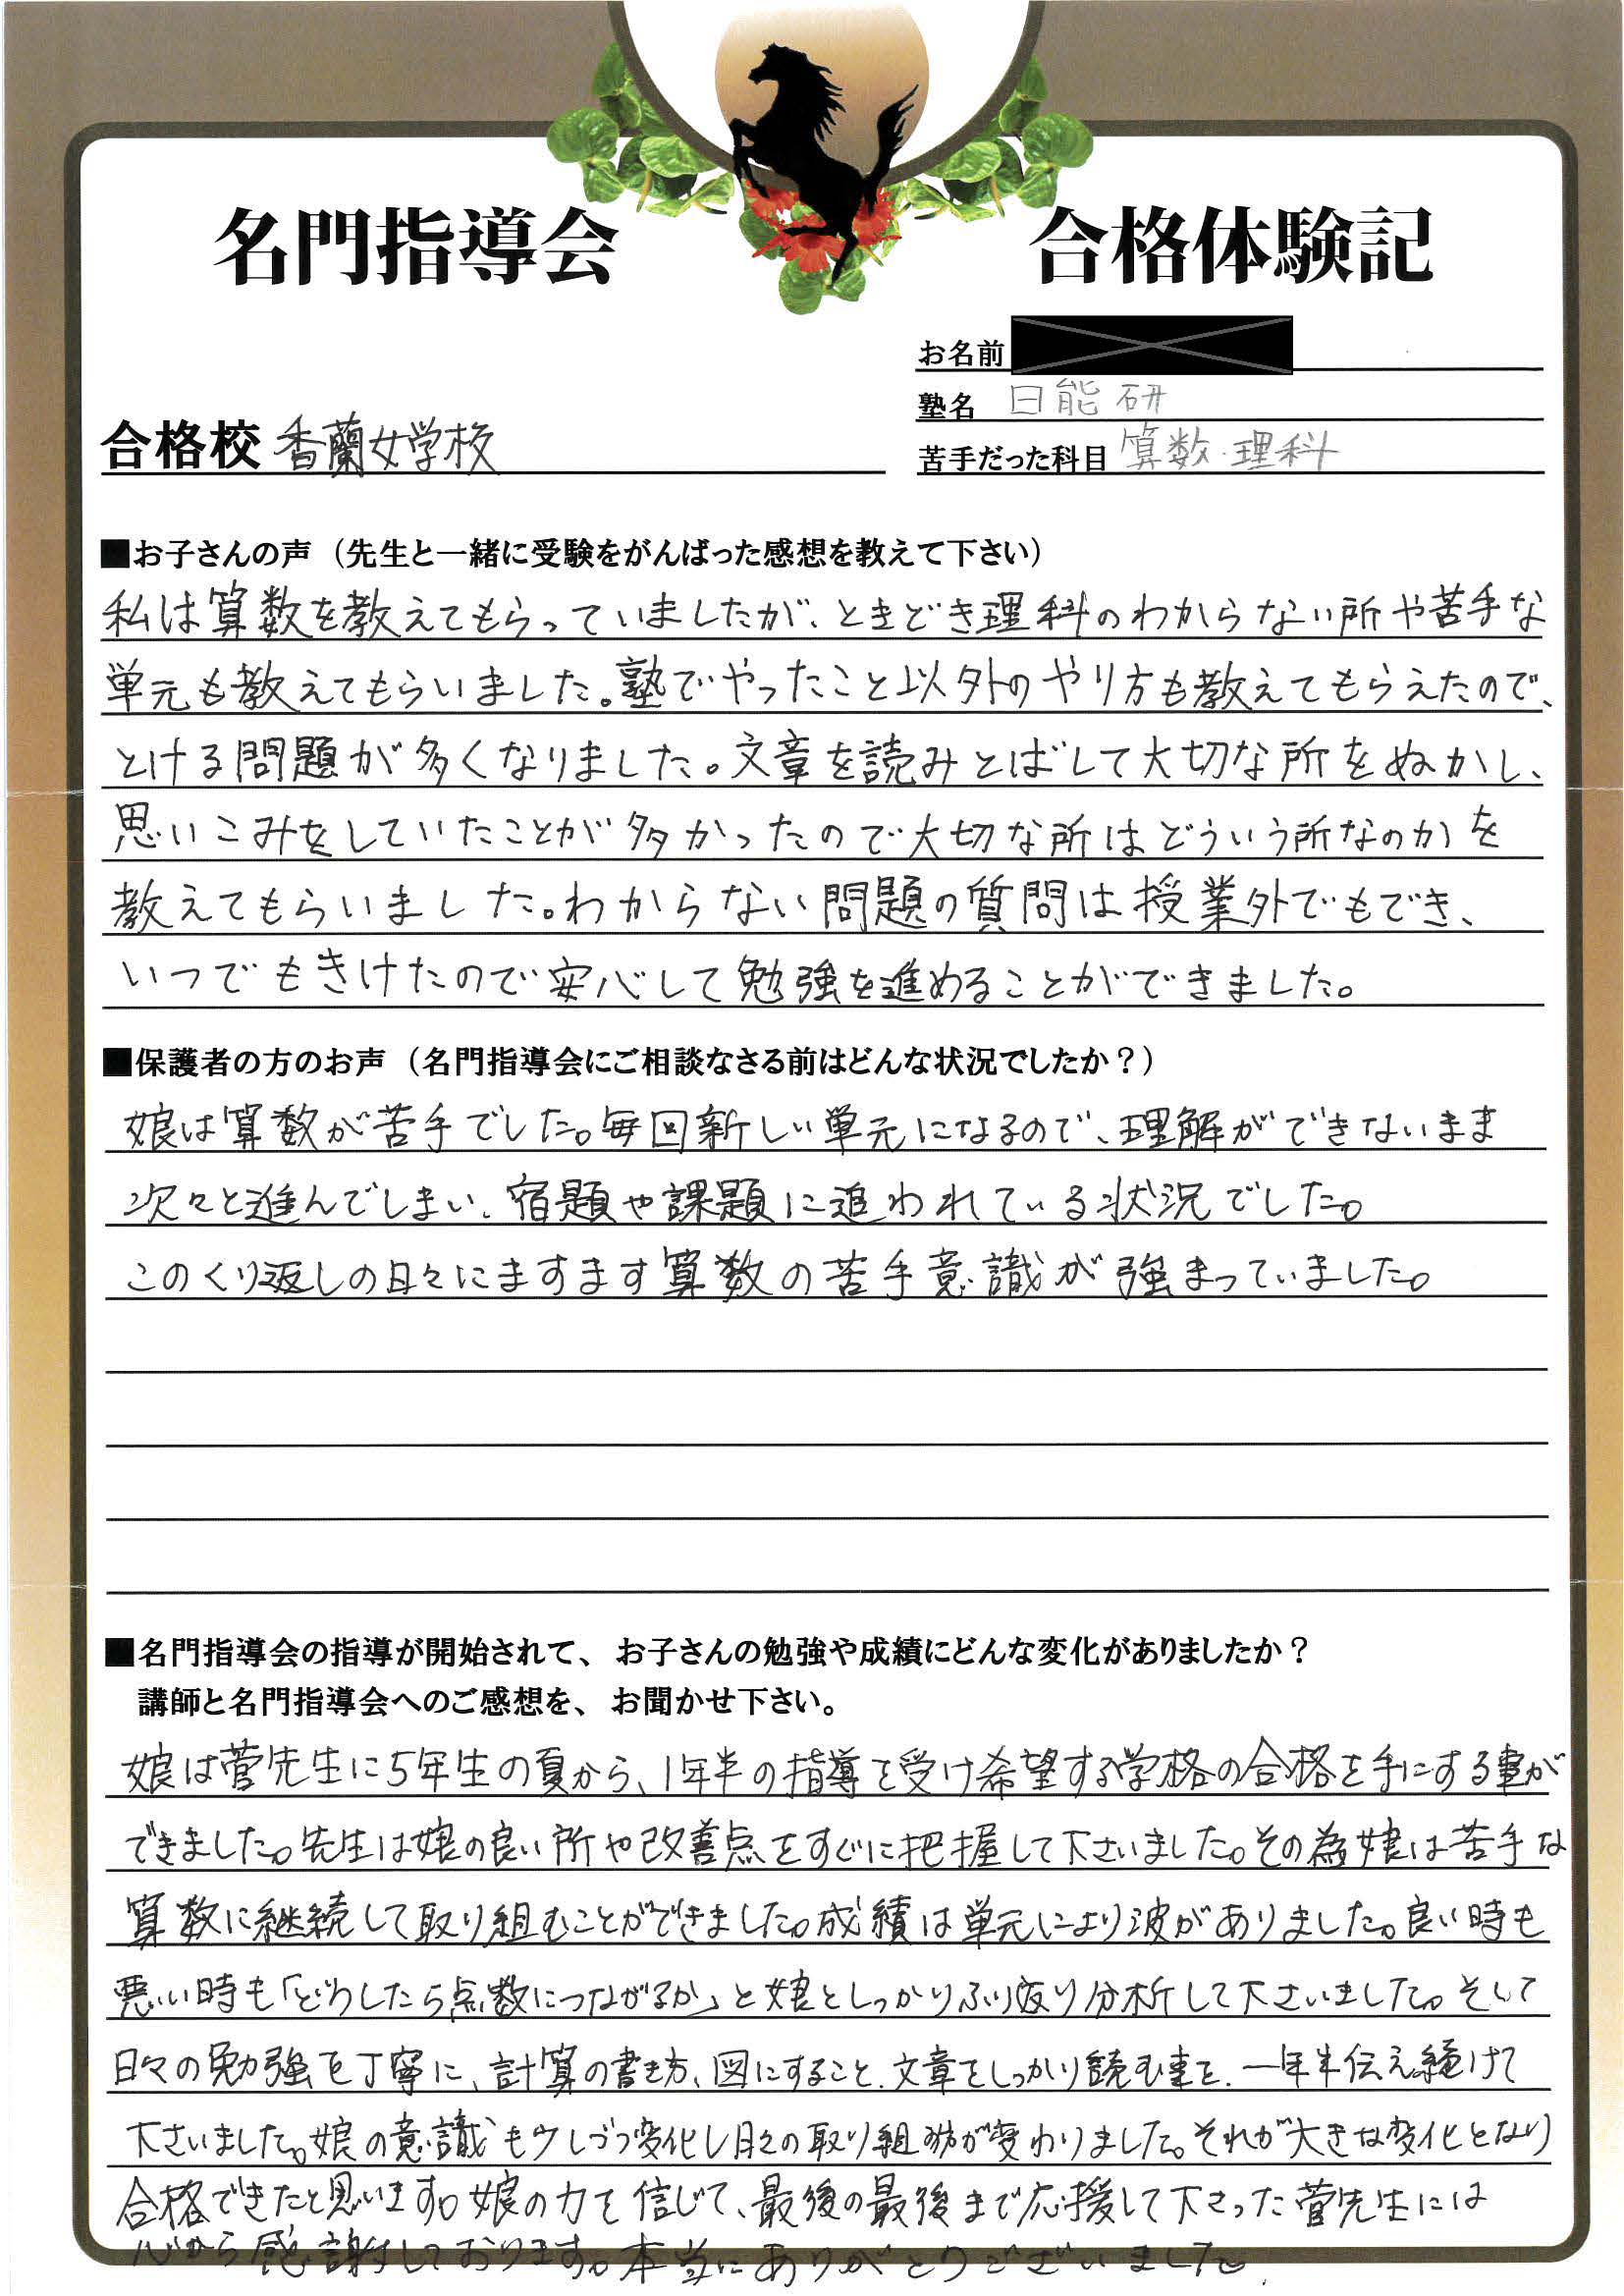 名門指導会
合格体験記
お名前
塾名 日能研
合格校 香蘭女学校
苦手だった科目 算数・理科
■お子さんの声（先生と一緒に受験をがんばった感想を教えて下さい）
私は算数を教えてもらっていましたが、ときどき理科のわからない所や苦手な
単元も教えてもらいました。塾でやったこと以外のやり方も教えてもらえたので、
とける問題が多くなりました。文章を読みとばして大切な所をぬかし、
思いこみをしていたことが多かったので大切な所はどういう所なのかを
教えてもらいました。わからない問題の質問は授業外でもでき、
いつでもきけたので安心して勉強を進めることができました。
■保護者の方のお声（名門指導会にご相談なさる前はどんな状況でしたか？）
娘は算数が苦手でした。毎回新しい単元になるので、理解ができないまま
次々と進んでしまい、宿題や課題に追われている状況でした。
このくり返しの日々にますます算数の苦手意識が強まっていました。
■名門指導会の指導が開始されて、お子さんの勉強や成績にどんな変化がありましたか？
講師と名門指導会へのご感想を、お聞かせ下さい。
娘は菅先生に5年生の夏から、1年半の指導を受け希望する学格の合格を手にする事が
できました。先生は娘の良い所や改善点をすぐに把握して下さいました。その為娘は苦手な
算数に継続して取り組むことができました。成績は単元により波がありました。良い時も
悪い時も「どうしたら点数につながるか」と娘としっかりふり返り分析して下さいました。そして
日々の勉強を丁寧に、計算の書き方、図にすること、文章をしっかり読む事を、一年半伝え続けて
下さいました。娘の意識も少しづつ変化し日々の取り組みが変わりました。それが大きな変化となり
合格できたと思います。娘の力を信じて、最後の最後まで応援して下さった菅先生には
心から感謝しております。本当にありがとうございました。